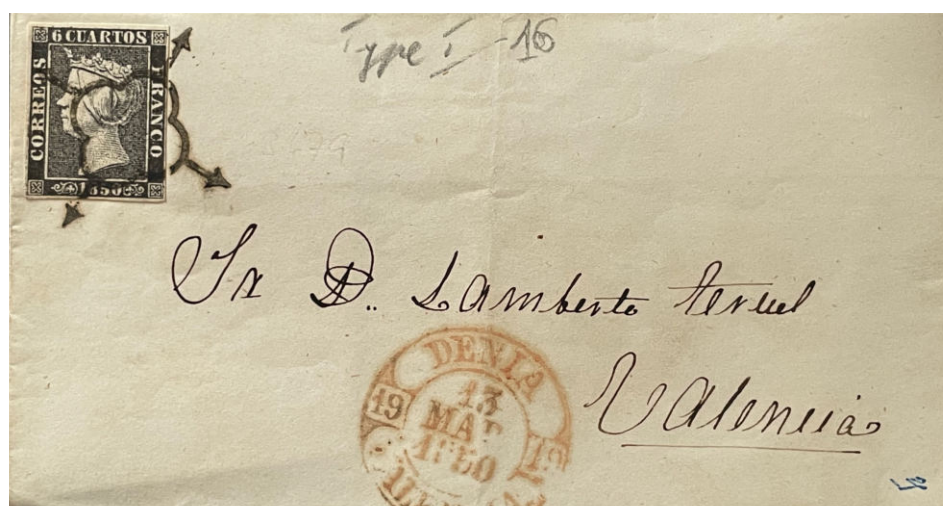 6 CUARTOS
CORREOS
FRANCO
1850
Type I - 16
Sr D. Lamberto Teruel
Valencia
DENIA
19
13
MAR
1850
19